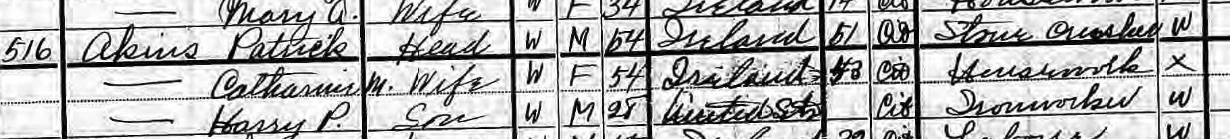 — Mary A. Wife W F 34 Ireland 14
516 Akins Patrick Head W M 54 Ireland 51 Stone Crusher W
— Catharine M. Wife W F 54 Ireland Cit Housework X
— Harry P. Son W M 28 United Sta Cit Ironworker W
W